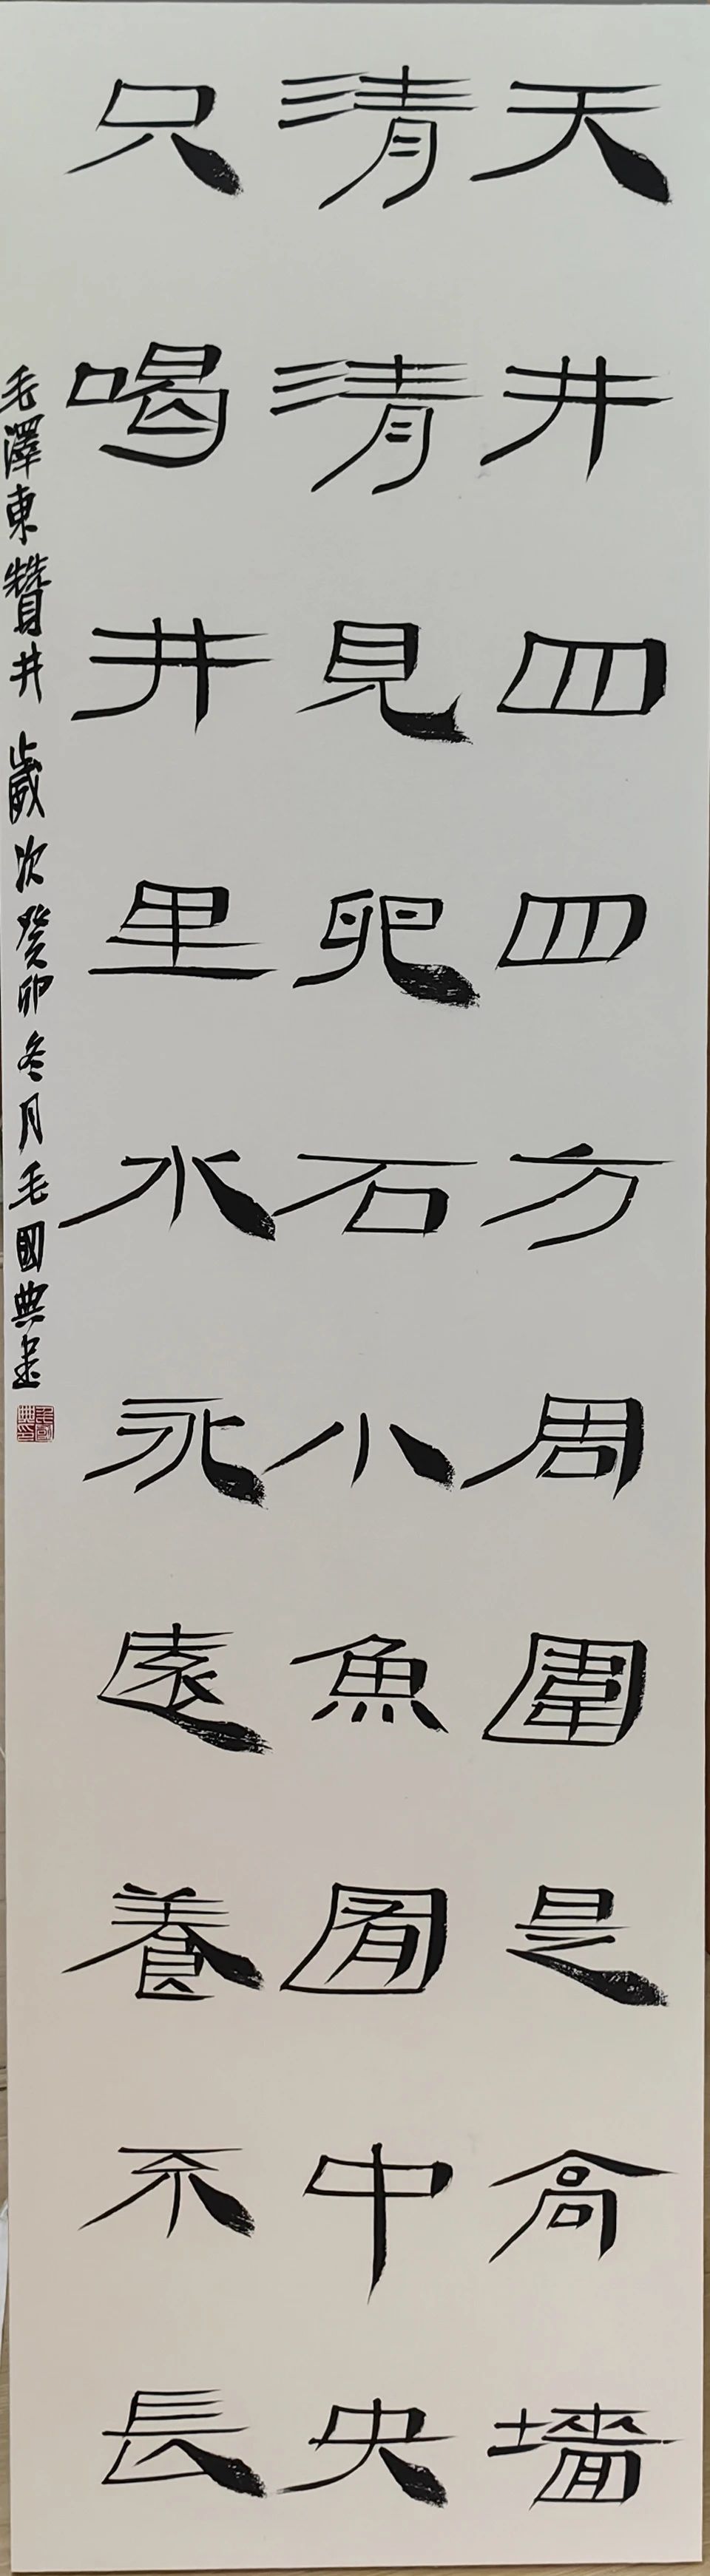 天井四四方周圍是高墻
清清見卵石小魚囿中央
只喝井里水永遠養不長
毛澤東贊井 歲次癸卯冬月毛國典書